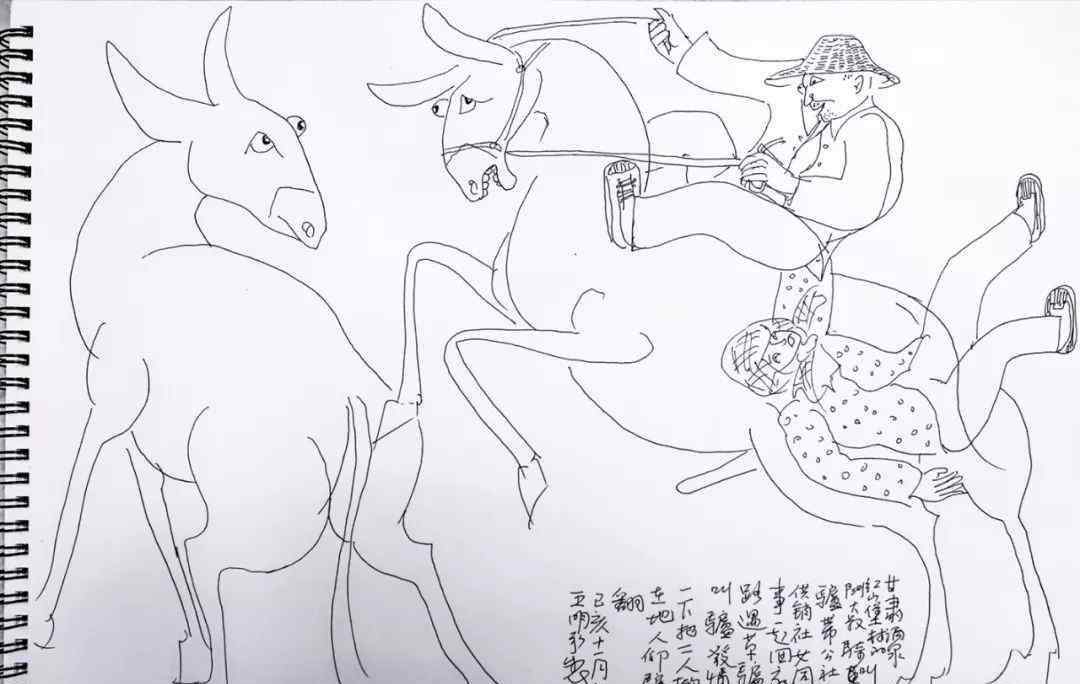 甘肃酒泉
红山堡村的
阿大叔骑叫
驢带公社
供销社女同
事一起回家
路遇草驢
叫驢发情
一下把二人掀
在地人仰驢
翻
己亥十一月
王明